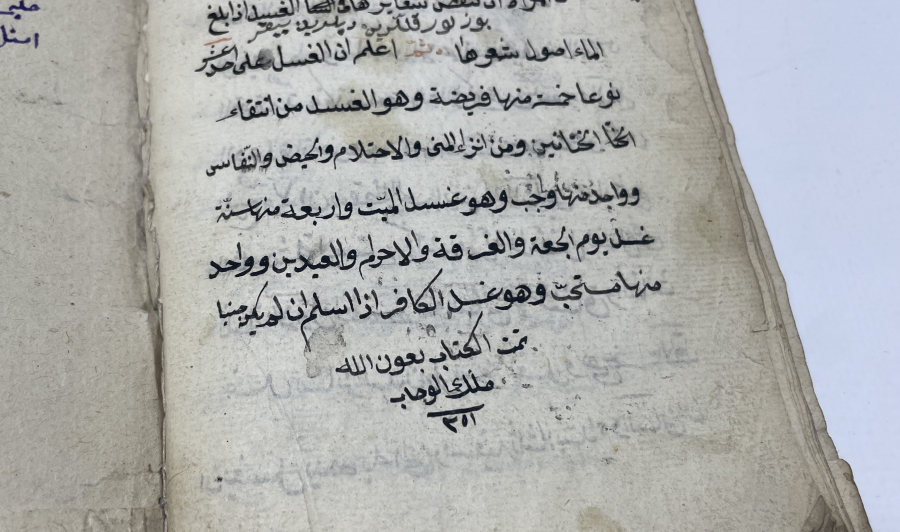 شعايرها في الغسل اذا بلغ
الماء اصول شعورها ثم اعلم ان الغسل على احد عشر
نوعا خمسة منها فريضة وهو الغسل من التقاء
الختانين ومن انزل المنى والاحتلام والحيض والنفاس
وواحد منها واجب وهو غسل الميت واربعة منها سنة
غسل يوم الجمعة والعرفة والاحرام والعيدين وواحد
منها مستحب وهو غسل الكافر اذا اسلم ان لم يكن جنبا
تمت الكتاب بعون الله
ملك الوهاب